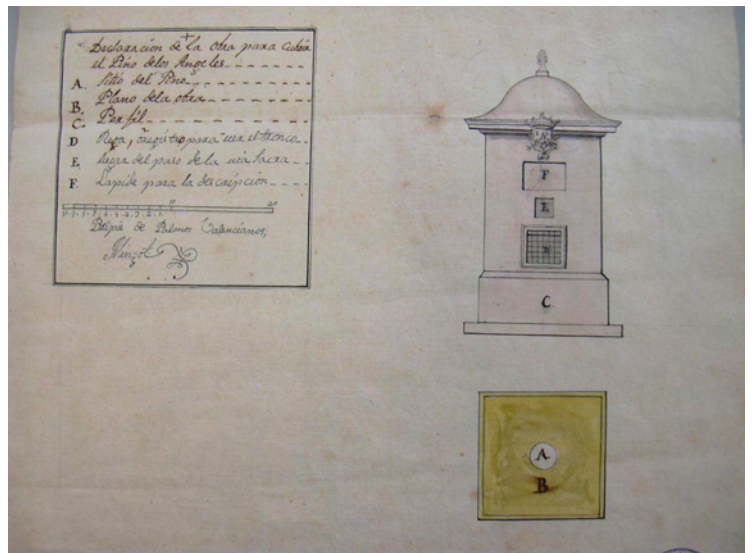 Declaración de la obra para Cubrir
el Pino delos Angeles
A. Sitio del Pino
B. Plano dela obra
C. Perfil
D Reja, registro para ver el tronco
E. del paso de la via sacra
F. Lapida para la descripción
Pitipie de Palmos Valencianos,
F
E
C
A
B